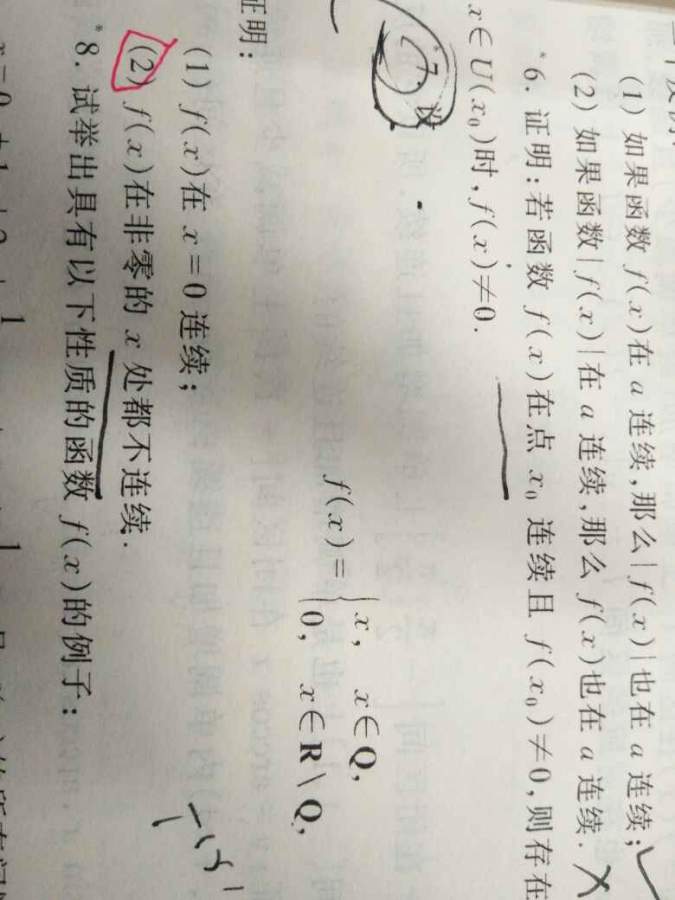 (1) 如果函数 f(x)在 a 连续,那么|f(x)|也在 a 连续;
(2) 如果函数|f(x)|在 a 连续,那么 f(x)也在 a 连续.
*6. 证明:若函数 f(x)在点 x₀ 连续且 f(x₀)≠0,则存在
x∈U(x₀)时,f(x)≠0.
*7. 设
f(x)={x, x∈Q,
0, x∈R\Q,
证明:
(1) f(x)在 x=0 连续;
(2) f(x)在非零的 x 处都不连续.
*8. 试举出具有以下性质的函数 f(x)的例子: